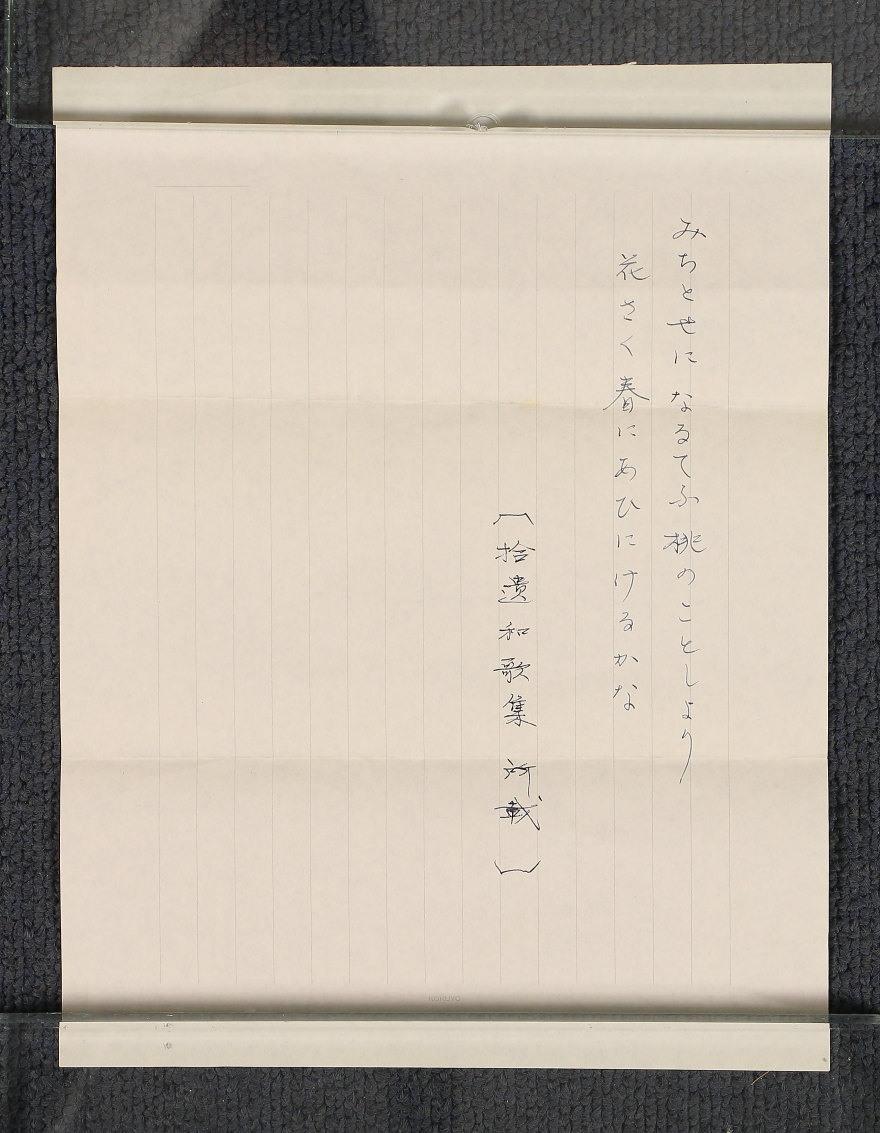 みちとせになるてふ桃のことしより
花さく春にあひにけるかな
〔拾遺和歌集 所載〕
KOKUYO